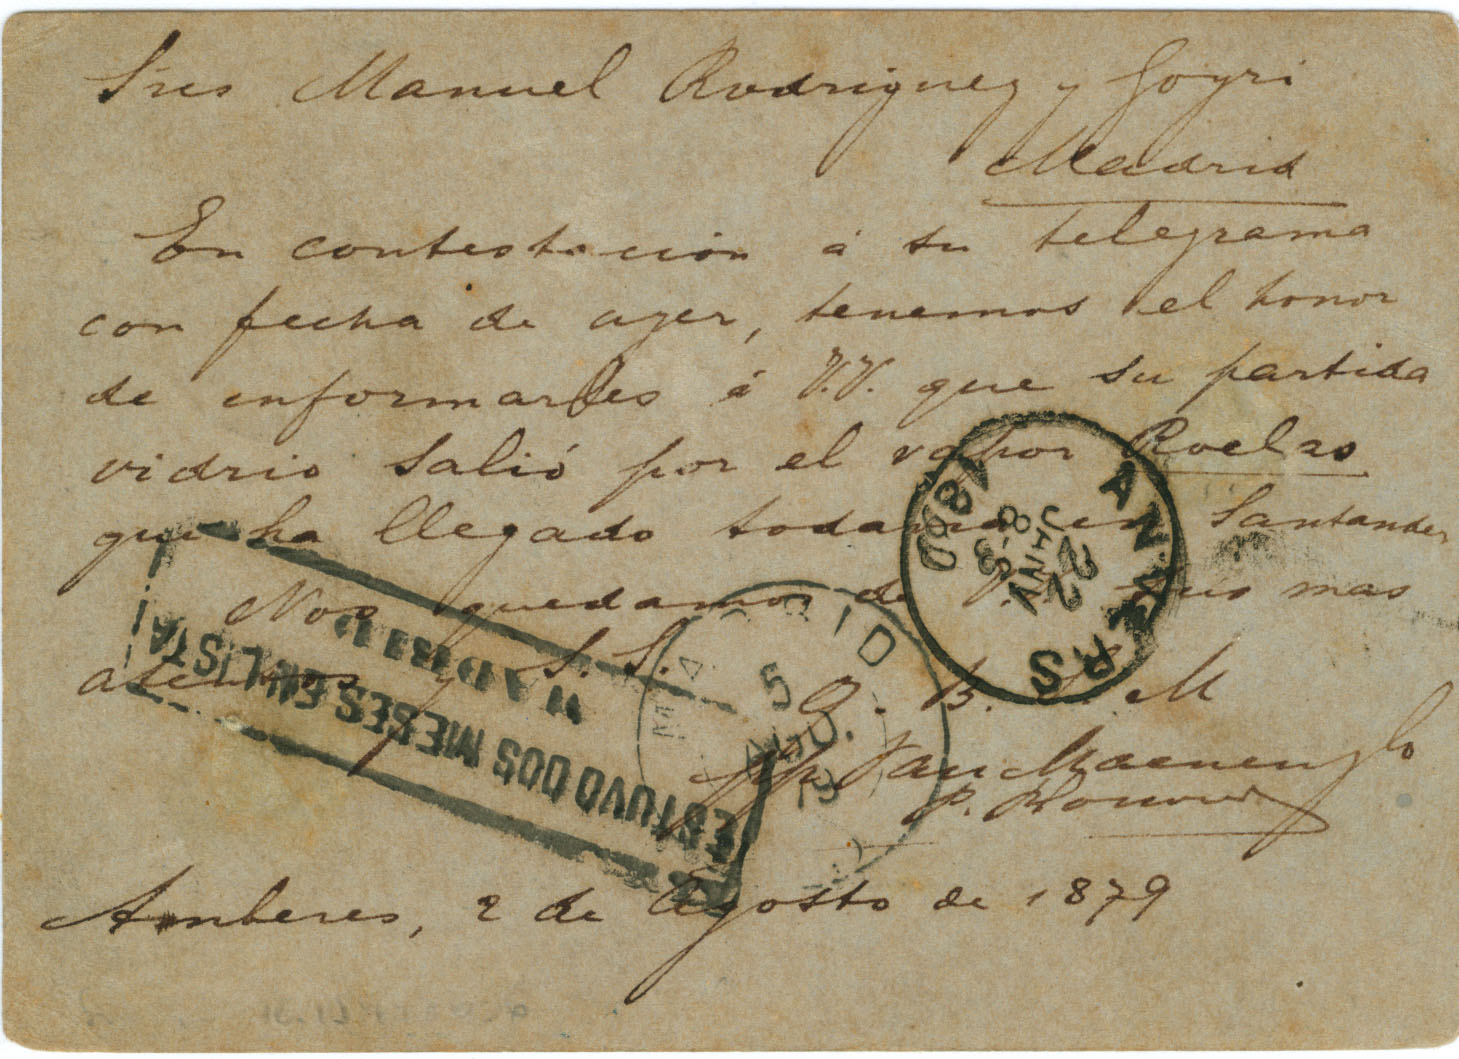 Sres Manuel Rodriguez y Goyri
Madrid
En contestación á su telegrama
con fecha de ayer, tenemos el honor
de informarles á V.V. que su partida
vidrio salió por el vapor Roelas
que ha llegado todavia en Santander
Nos quedamos de V. sus mas
atentos y S. S.
Q. B. S. M
pp. Van
P.
Amberes, 2 de Agosto de 1879
ANVERS
1880
22
JANV
8-S
MADRID
5
AGO.
79
ESTUVO DOS MESES EN LISTA
MADRID